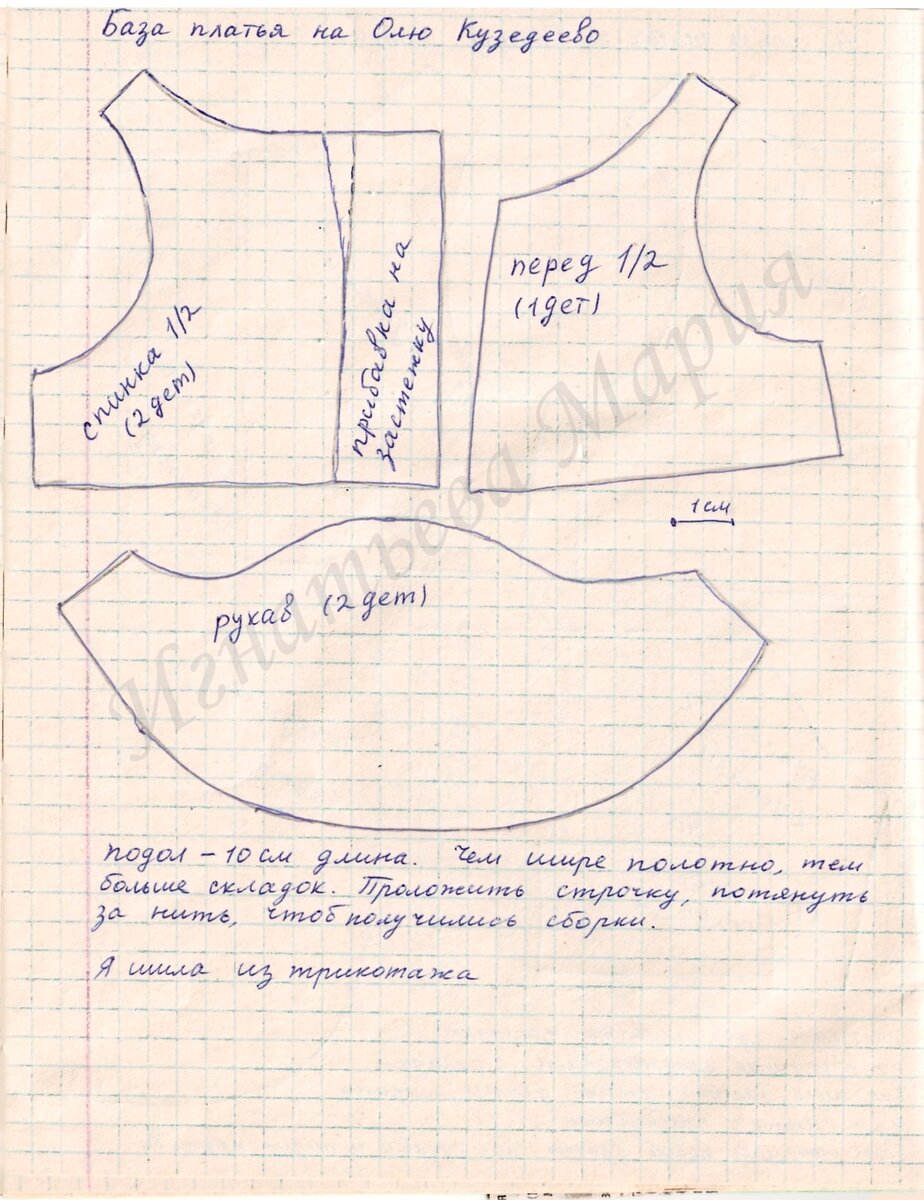 База платья на Олю Кузедеево
спинка 1/2
(2 дет)
прибавка на
застежку
перед 1/2
(1дет)
1 см
рукав (2 дет)
Игнатьева Мария
подол – 10 см длина. Чем шире полотно, тем
больше складок. Проложить строчку, потянуть
за нить, чтоб получились сборки.
Я шила из трикотажа